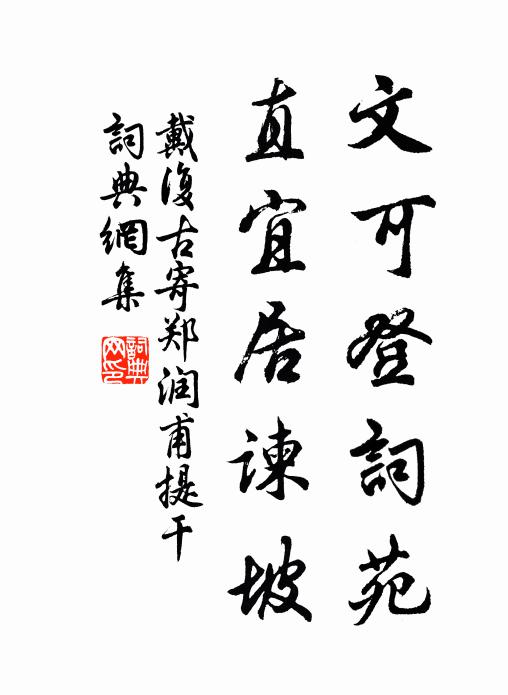 文可登詞苑
直宜居諫坡
戴復古寄郑润甫提干
詞典網集
詞典网印